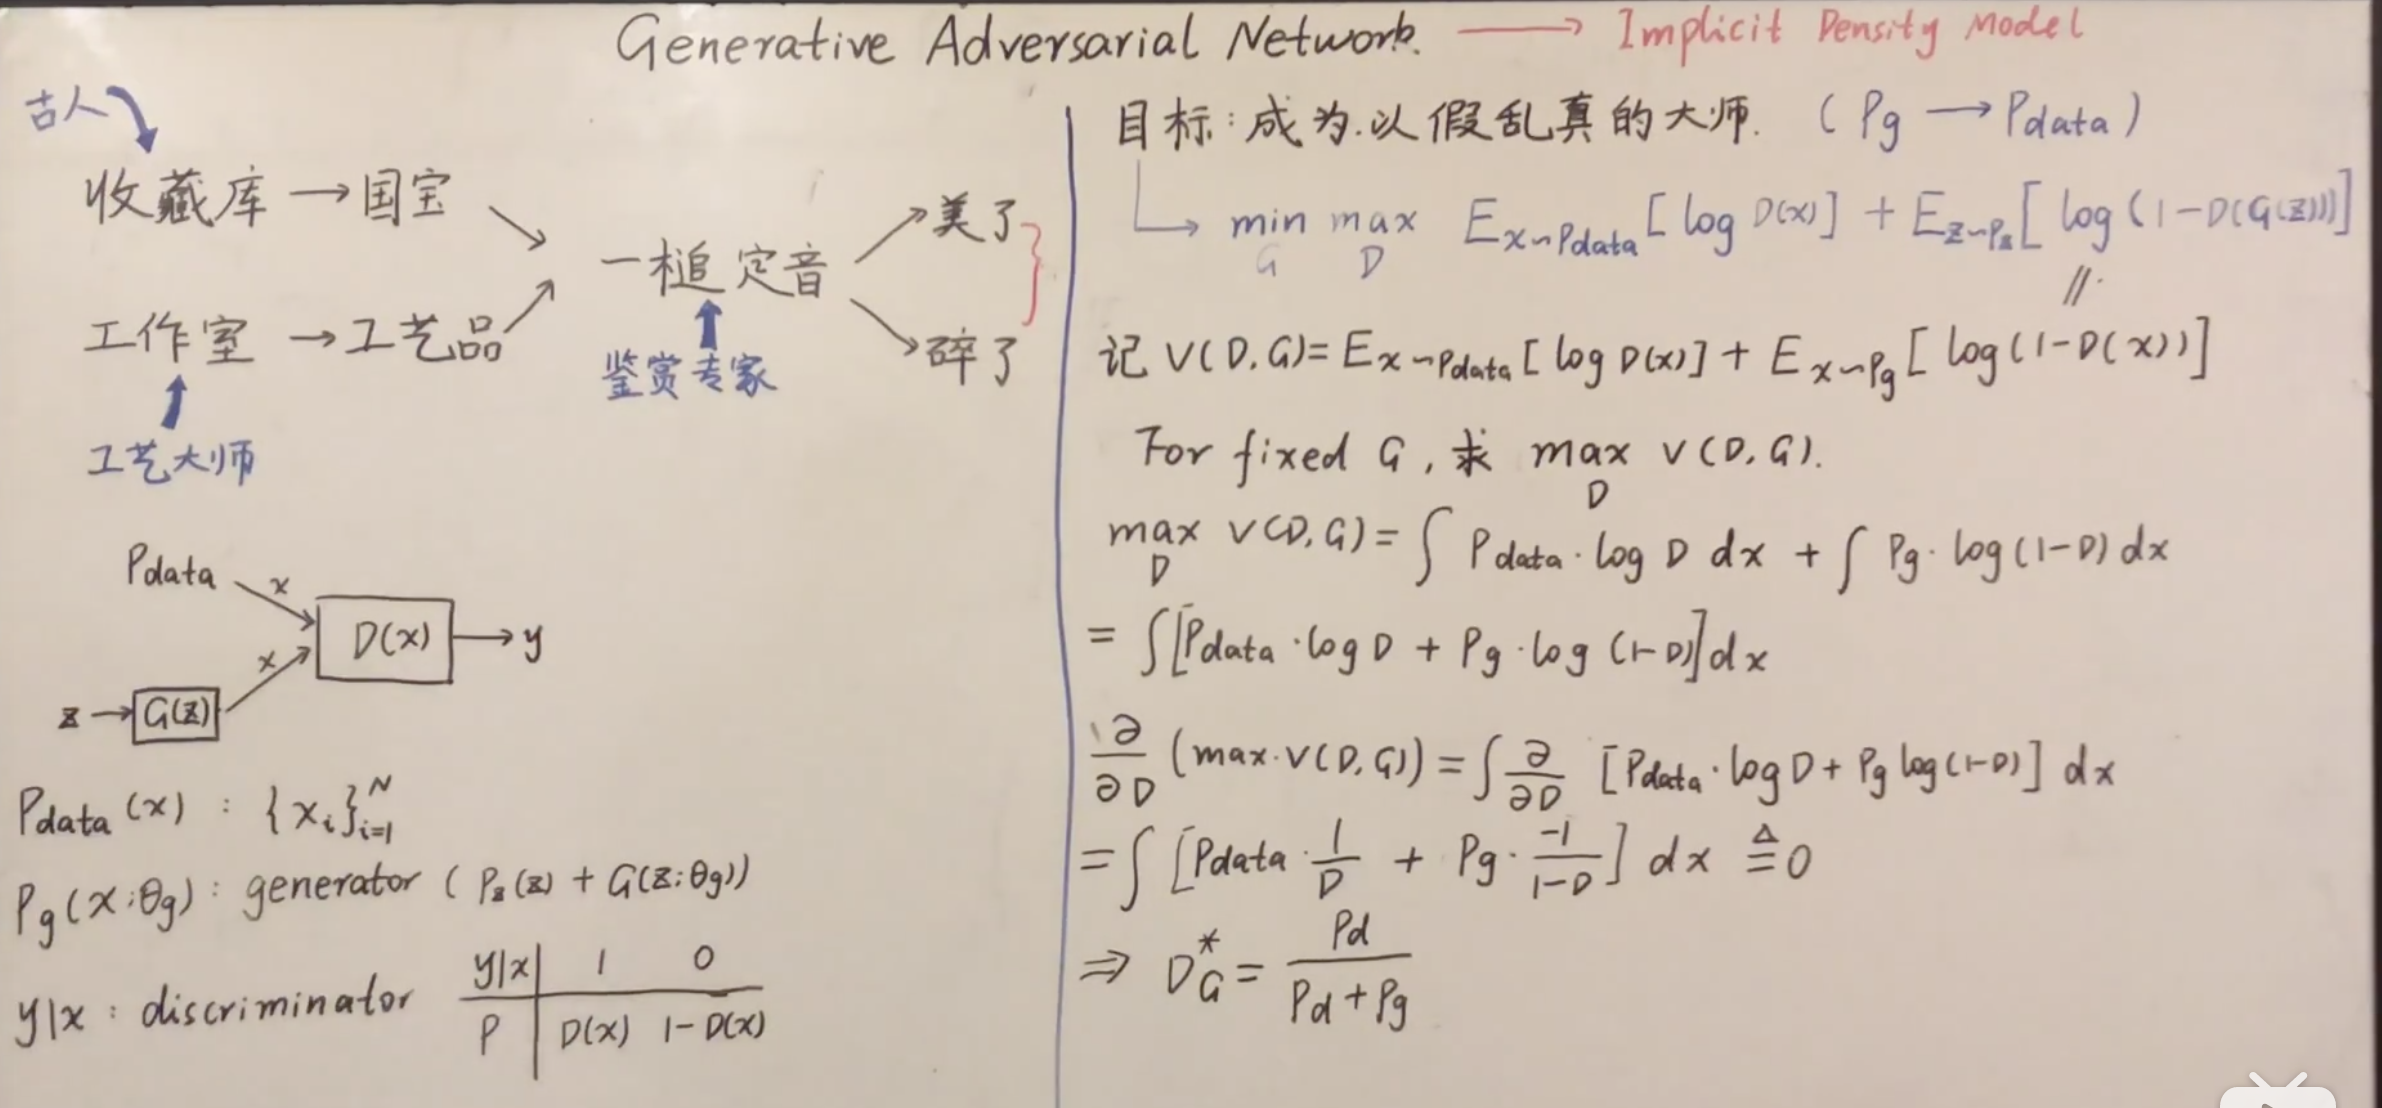 Generative Adversarial Network. → Implicit Density Model
古人
收藏库 → 国宝
一槌定音
美了
碎了
工作室 → 工艺品
鉴赏专家
工艺大师
Pdata
x
D(x) → y
x
z → G(z)
Pdata(x) : {xᵢ}ᵢ₌₁ᴺ
Pg(x;θg) : generator (Pz(z) + G(z;θg))
y|x : discriminator
y|x 1 0
P D(x) 1-D(x)
目标:成为以假乱真的大师. (Pg → Pdata)
min_G max_D E_{x~Pdata}[log D(x)] + E_{z~Pz}[log(1-D(G(z)))]
记 V(D,G) = E_{x~Pdata}[log D(x)] + E_{x~Pg}[log(1-D(x))]
For fixed G, 求 max_D V(D,G).
max_D V(D,G) = ∫ Pdata·log D dx + ∫ Pg·log(1-D) dx
= ∫[Pdata·log D + Pg·log(1-D)]dx
∂/∂D (max·V(D,G)) = ∫ ∂/∂D [Pdata·log D + Pg log(1-D)] dx
= ∫ [Pdata·1/D + Pg·-1/(1-D)] dx ≜ 0
⇒ D*_G = Pd/(Pd+Pg)